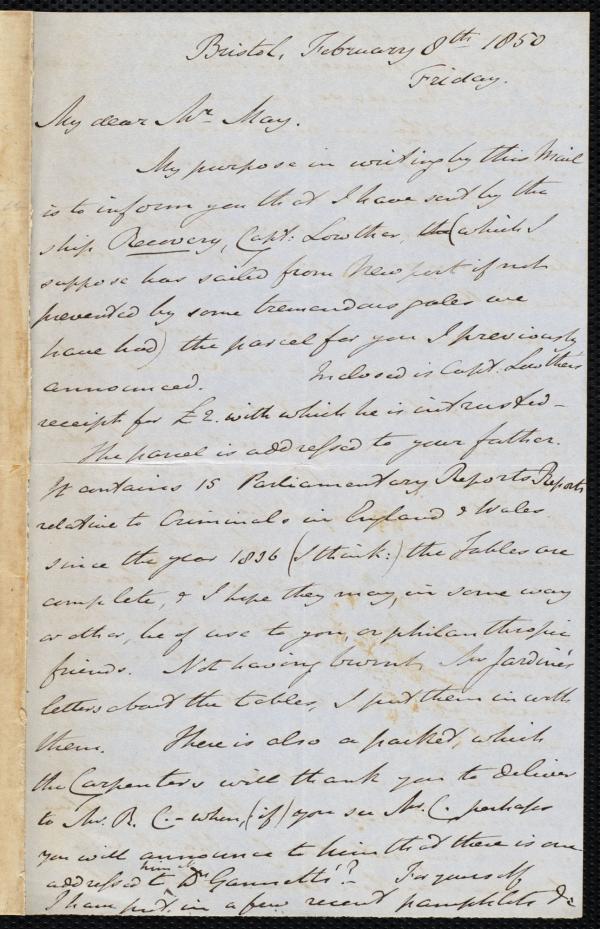 Bristol, February 8th 1850
Friday.
My dear Mr. May.
My purpose in writing by this Mail
is to inform you that I have sent by the
ship Recovery, Capt: Lowther, the (which I
suppose has sailed from Newport if not
prevented by some tremendous gales we
have had) the parcel for you I previously
announced. Inclosed is Capt. Lowther's
receipt for £2. with which he is intrusted—
The parcel is addressed to your father.
It contains 15 Parliamentary Reports Reports
relative to Criminals in England & Wales
since the year 1836 (I think:) the Tables are
complete, & I hope they may, in some way
or other, be of use to you, or philanthropic
friends. Not having burnt Mr Jardine's
letters about the tables, I put them in with
them. There is also a packet, which
the Carpenters will thank you to deliver
to Mr. R. C.— when, (if) you see Mr. C. perhaps
you will announce to him that there is one
addressed to him Dr Gannett's? For yourself
I have put in a few recent pamphlets &c